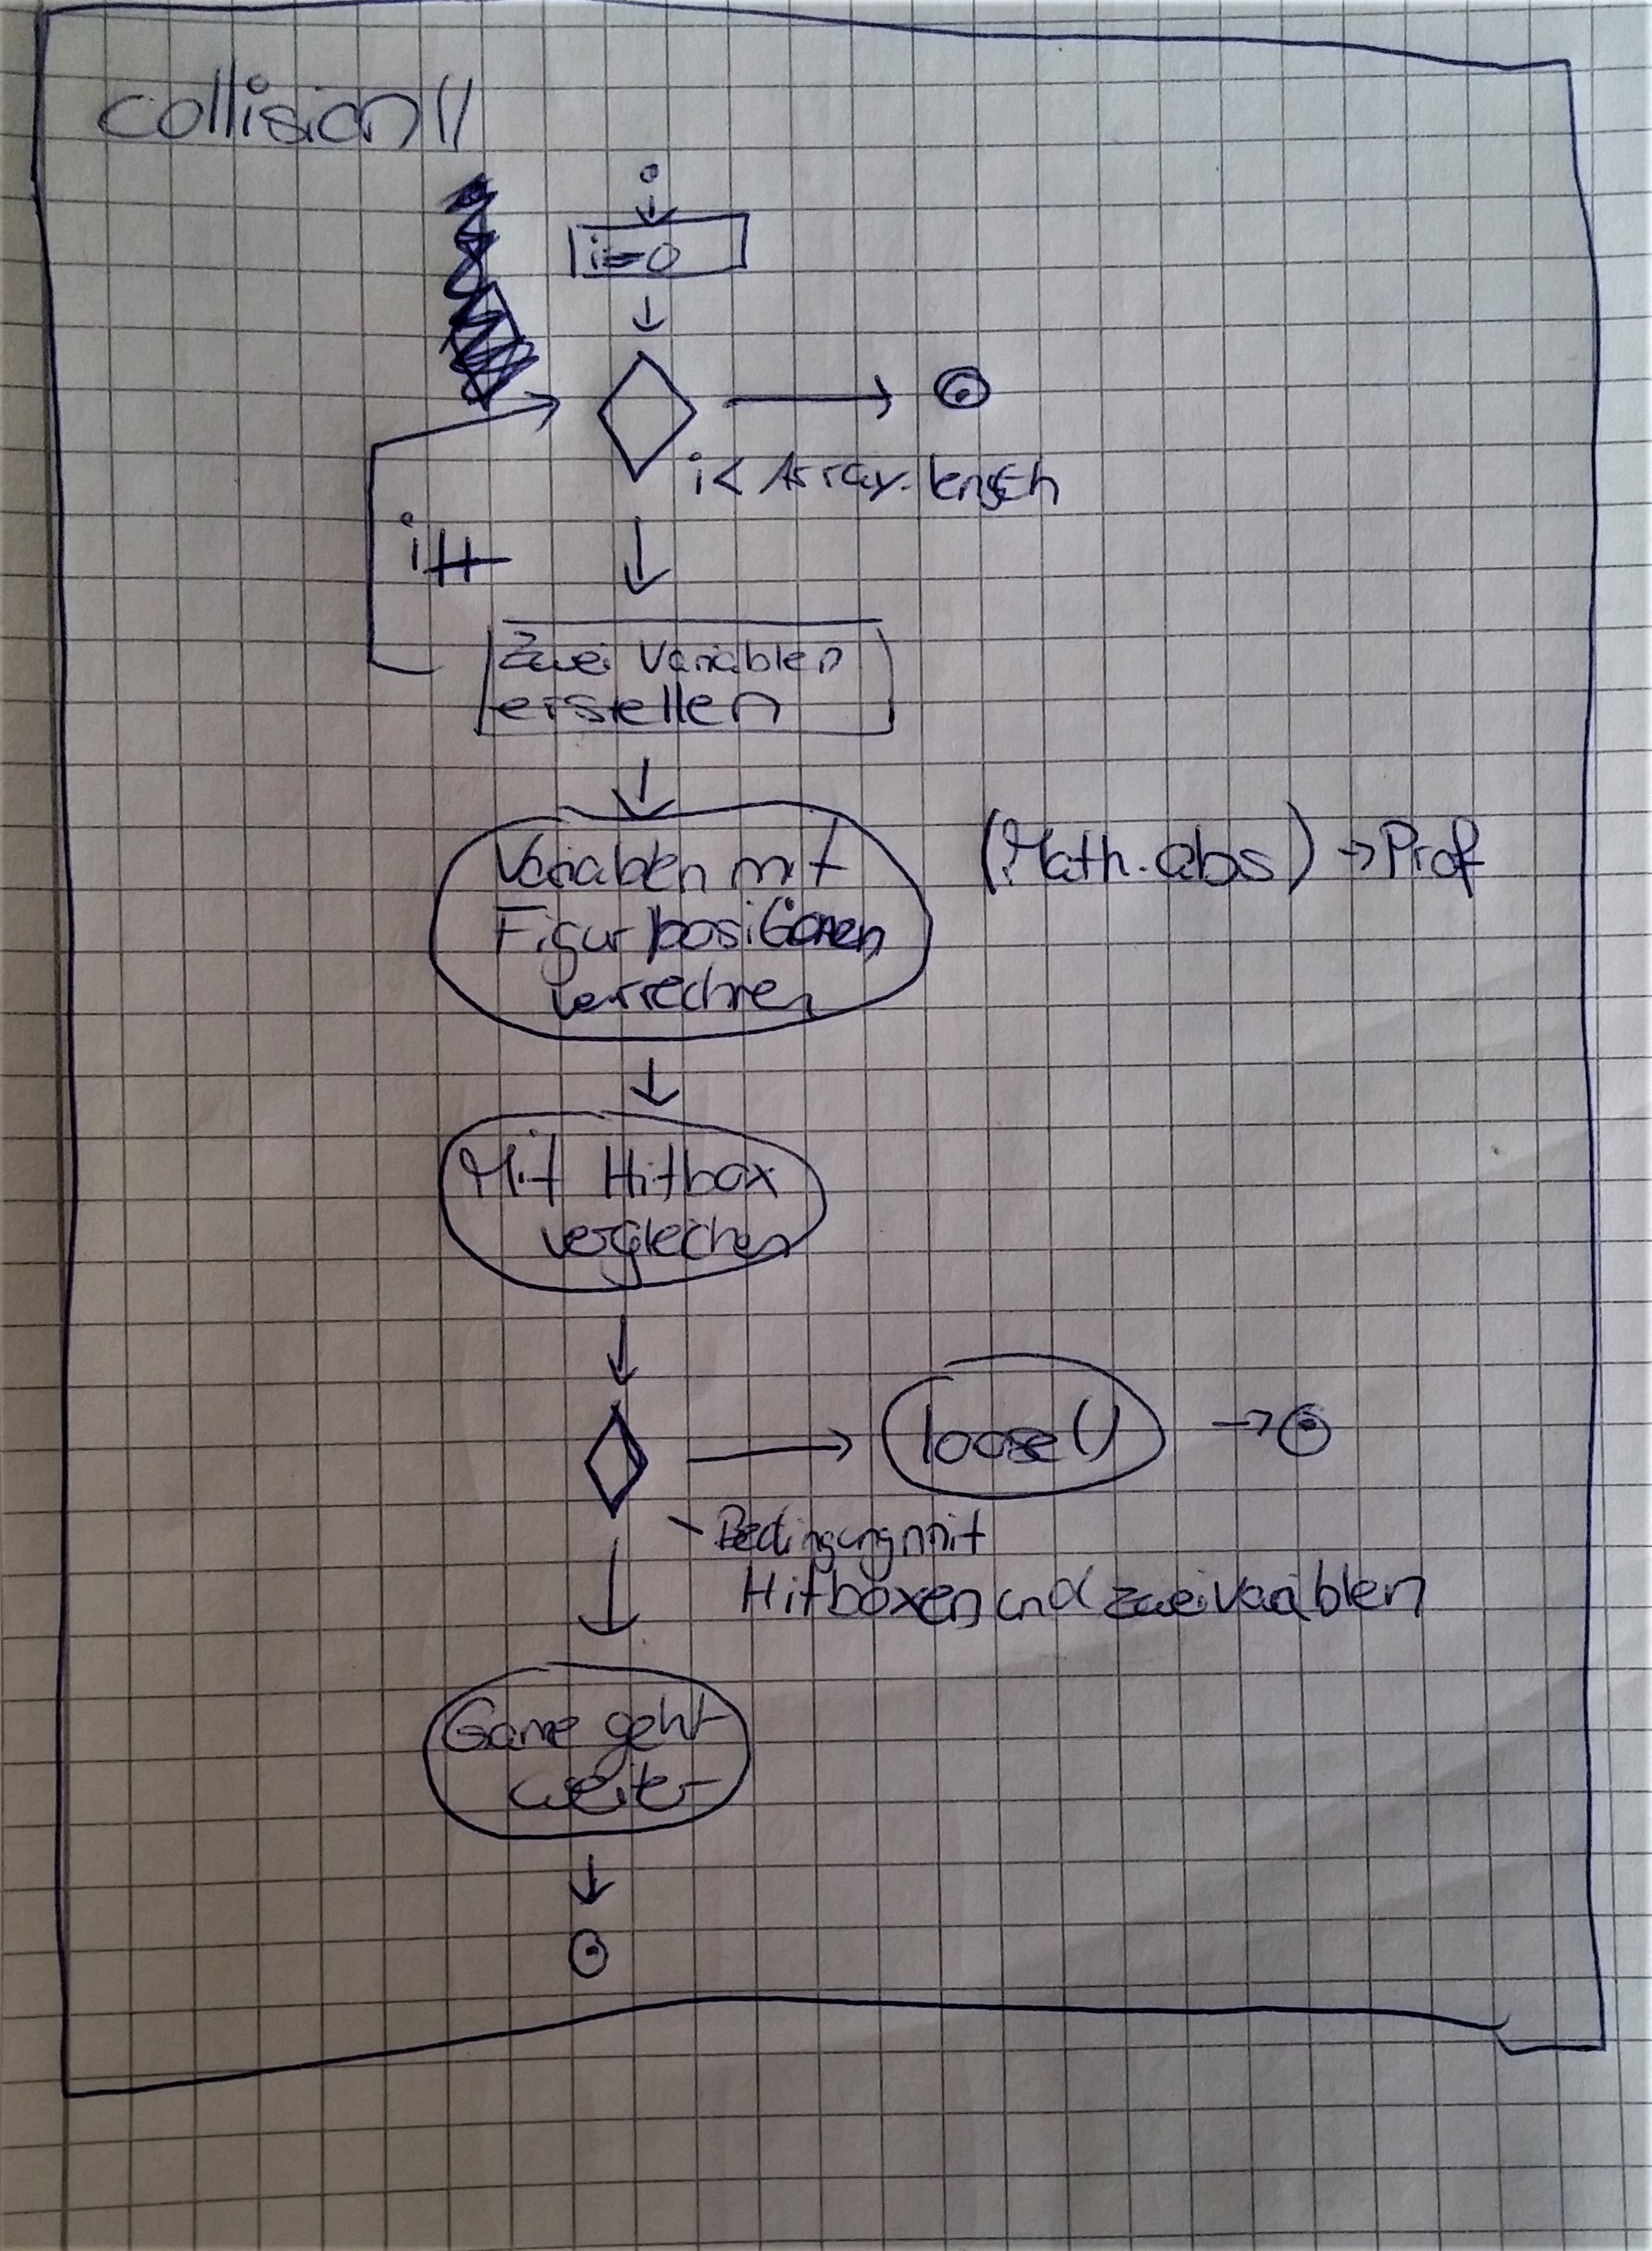 collision()
i=0
i< Array.length
i++
Zwei Variablen
erstellen
Variablen mit
Figurpositionen
verrechnen
(Math.abs) → Prof
Mit Hitbox
vergleichen
loose()
Bedingung mit
Hitboxen und zwei Variablen
Game geht
weiter